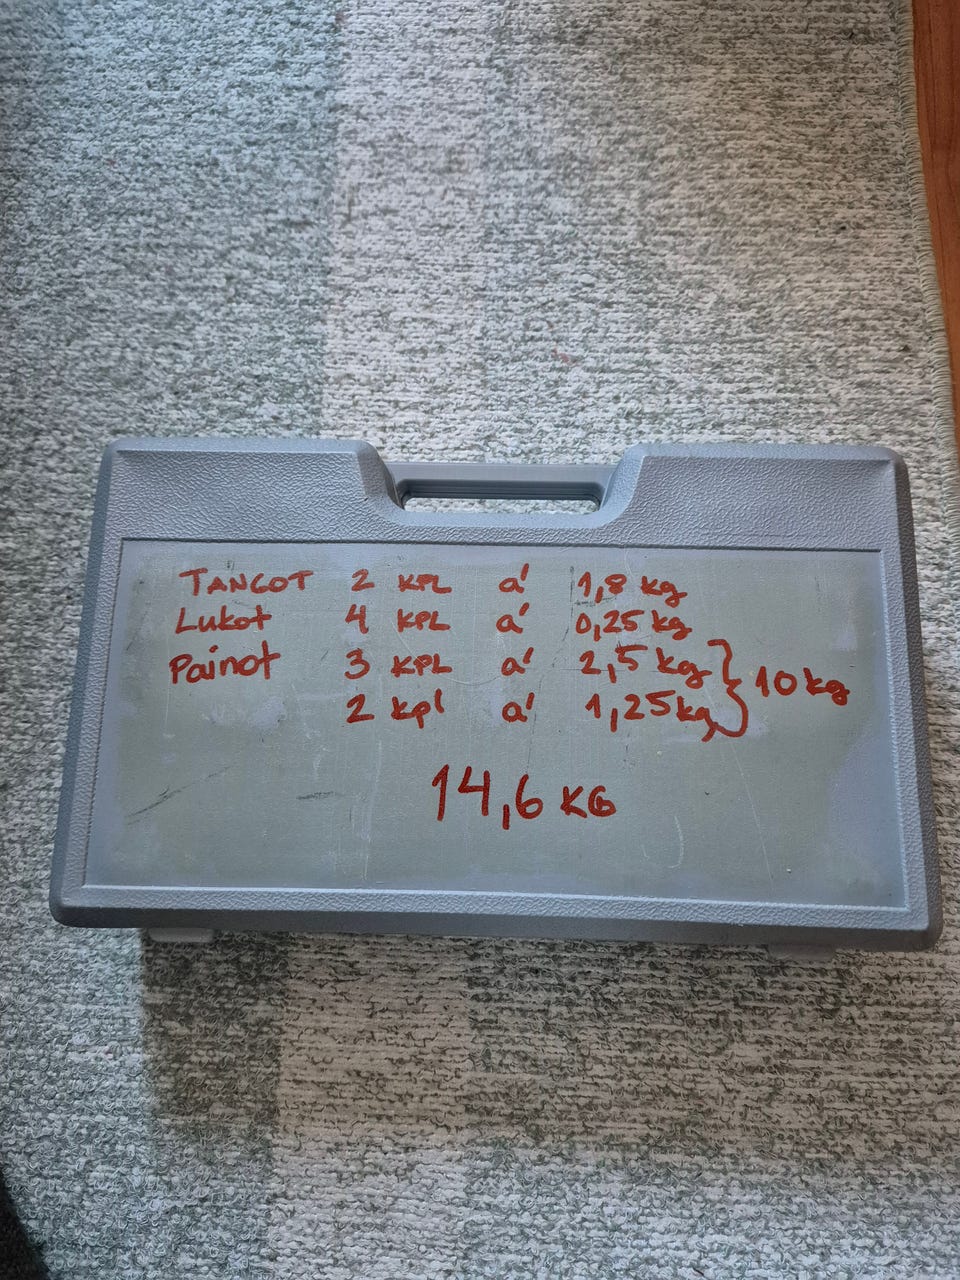 TANGOT 2 KPL a' 1,8 kg
Lukot 4 KPL a' 0,25 kg
Painot 3 KPL a' 2,5 kg } 10 kg
2 kpl a' 1,25 kg
14,6 KG